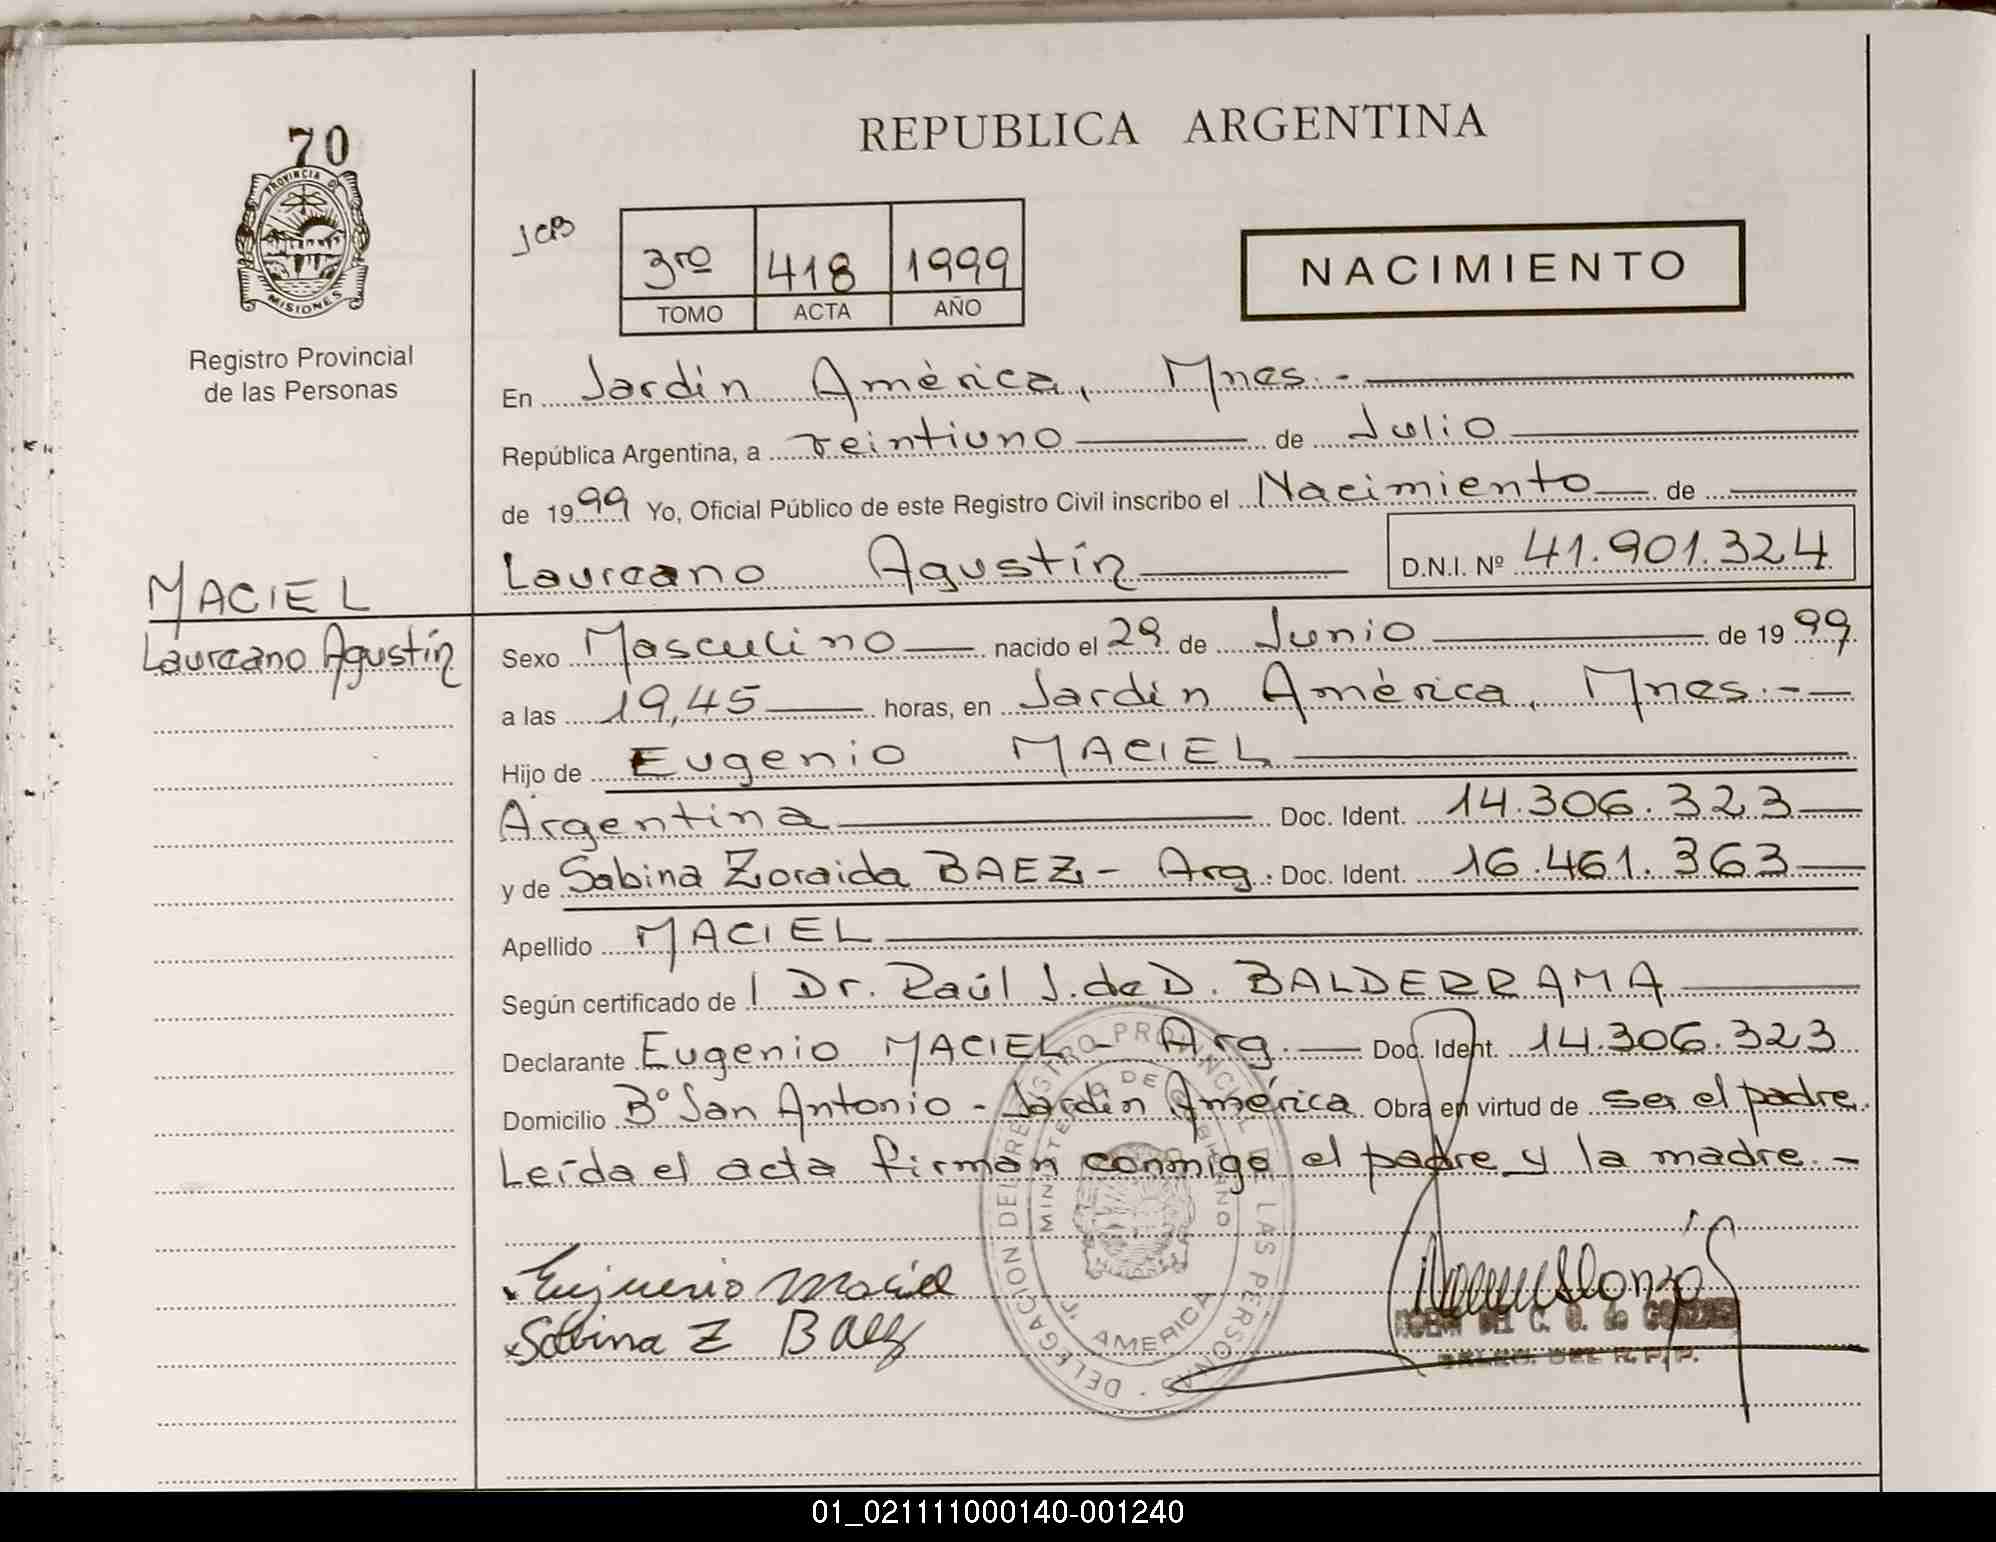 70
PROVINCIA DE
MISIONES
Registro Provincial
de las Personas
REPUBLICA ARGENTINA
JCB
3ro 418 1999
TOMO ACTA AÑO
NACIMIENTO
En Jardín América, Mnes.-
República Argentina, a veintiuno de Julio
de 1999 Yo, Oficial Público de este Registro Civil inscribo el Nacimiento de
Laureano Agustín D.N.I. Nº 41.901.324
MACIEL
Laureano Agustín
Sexo Masculino nacido el 29 de Junio de 1999
a las 19,45 horas, en Jardín América, Mnes.-
Hijo de Eugenio MACIEL
Argentina Doc. Ident. 14.306.323
y de Sabina Zoraida BAEZ - Arg. Doc. Ident. 16.461.363
Apellido MACIEL
Según certificado de l Dr. Raúl J. de D. BALDERRAMA
Declarante Eugenio MACIEL - Arg. Doc. Ident. 14.306.323
Domicilio Bº San Antonio - Jardín América Obra en virtud de ser el padre
Leída el acta firman conmigo el padre y la madre.-
DELEGACION DEL REGISTRO PROVINCIAL DE LAS PERSONAS
MINISTERIO DE
J. AMERICA
Eugenio Maciel
Sabina Z Baez
DEL C. O. de GONZALEZ
DEL R.P.P.
01_021111000140-001240